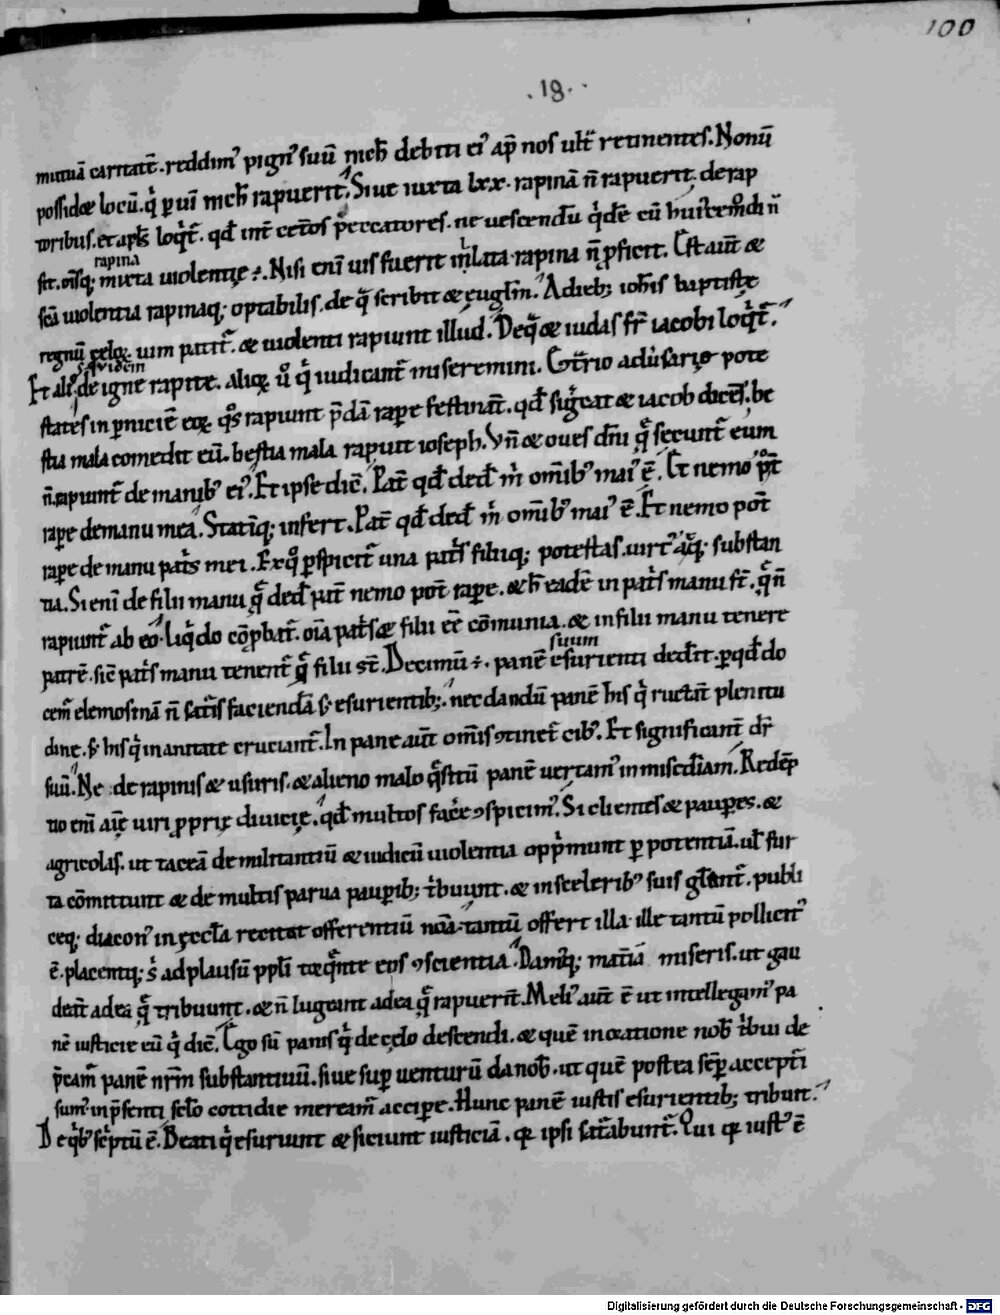 100
.18.
mutuā caritatē. reddim' pign' suū nich debiti ei' ap nos ult retinentes. Nonū
possidꝫ locū. q̇ p uī nich rapuerit. Siue iuxta lxx. rapinā n̄ rapuerit. de rap
toribus. et apls loqt'. qd int cetos peccatores. ne uescendū qdē cū hui'cemodi n̄
sit. oīsq;
rapina
mixta uiolentię ÷. Nisi enī uis fuerit illata rapina n̄ pficit. Est aūt &
scā uiolentia rapinaq; optabilis. de q̄ scribit & euglm. A dieb; iohis baptistę
regnū celoꝝ uim patit'. & uiolenti rapiunt illud. De q̄ & iudas fr iacobi loqt'.
s. quidem
Et alios de igne rapite. alioꝝ u° q̇ iudicant' miseremini. Ctrio aduersarioꝝ pote
states in pniciē eoꝝ q°s rapiunt pdā rape festinat. qd sigreat & iacob dicens. be
stia mala comedit eū. bestia mala rapuit ioseph. Vn̄ & oues dn̄i q̄ secunt' eum
n̄ rapiunt' de manib; ei'. Et ipse dic̄. Pat' qd ded' m̄ omib; mai' ē. Et nemo pot'
rape de manu mea. Statimq; infert. Pat' qd ded' m̄ omib; mai' ē. Et nemo pot'
rape de manu patis mei. Ex q° pspicit' una patis filiiq; potestas. uirt' atq; substan
tia. Si enī de filii manu q̄ ded' pat' nemo pot' rape. & h eadē in patis manu st. q̄ n̄
rapiunt' ab eo. liqdo cōpbat'. oīa patis & filii ēe cōmunia. & in filii manu tenere
patrē. sic patis manu tenent' q̄ filii st. Decimū ÷. panē
suum
esurienti dedit. p qd do
cem' elemosinā n̄ satis faciendā s; esurientib;. nec dandū panē his q̇ ructāt plenitu
dine. s; his q̇ inanitate cruciant'. In pane aūt omīs ꝯtinet' cib;. Et significant' dr
suū. Ne de rapinis & usuris. & alieno malo q̄sitū panē uertam' in miscdiam. Redēp
tio enī aīę uiri pprię diuitię. qd multos facē ꝯspicim'. Si clientes & paupes. &
agricolas. ut taceā de militantiū & iudicū uiolentia oppmunt p potentiā. ul fur
ta cōmittunt & de multis parua paupib; tbuunt. & in sceleribꝰ suis glant'. publi
ceq; diacon' in ęccla recitat offerentiū noīa. tantū offert illa. ille tantū pollicit'
ē. placentq; s' ad plausū ppli torqnte eos ꝯscientia. Damq; mat'iā miseris. ut gau
deāt ad ea q̄ tribuunt. & n̄ lugeant ad ea q̄ rapuerīt. Meli' aūt ē ut intellegam' pa
nē iusticie eū q̇ dic̄. Ego sū panis q̇ de celo descendi. & quē in oratione nob tbui de
pcam' panē nrm substantiuū. siue sup uenturū da nob. ut quē postea semp accepti
sum' in psenti sclo cottidie meream' accipe. Hunc panē iustis esurientib; tribunt.
De qb; scptū ē. Beati q̇ esuriunt & siciunt iusticiā. qꝫ ipsi sat'abunt'. Qui qꝫ iust' ē
Digitalisierung gefördert durch die Deutsche Forschungsgemeinschaft - DFG